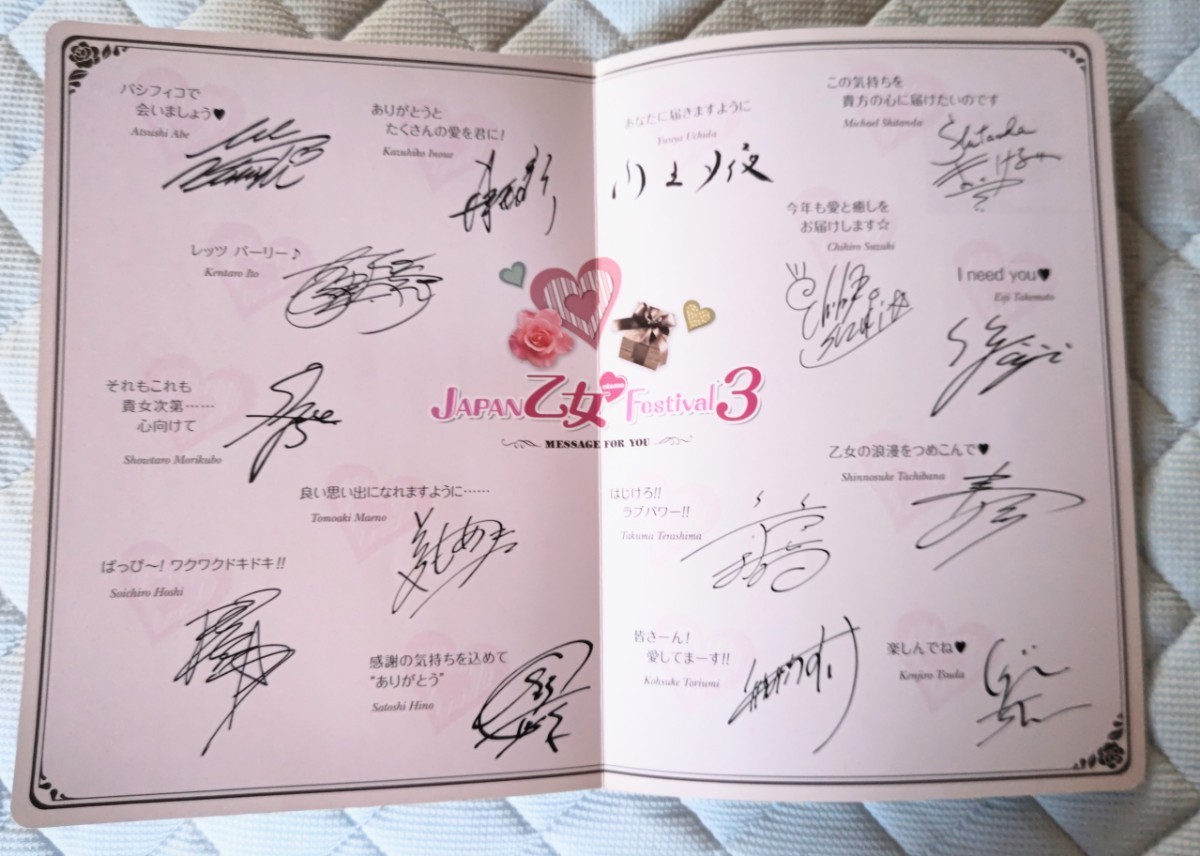 パシフィコで
会いましょう♥
Atsushi Abe
ありがとうと
たくさんの愛を君に!
Kazuhiko Inoue
レッツ パーリー♪
Kentaro Ito
それもこれも
貴女次第……
心向けて
Showtaro Morikubo
良い思い出になれますように……
Tomoaki Maeno
ぱっぴ～! ワクワクドキドキ!!
Soichiro Hoshi
感謝の気持ちを込めて
“ありがとう”
Satoshi Hino
JAPAN乙女Festival3
otome
MESSAGE FOR YOU
あなたに届きますように
Yuuya Uchida
この気持ちを
貴方の心に届けたいのです
Michael Shitanda
Shitanda
今年も愛と癒しを
お届けします☆
Chihiro Suzuki
I need you♥
Eiji Takemoto
乙女の浪漫をつめこんで♥
Shinnosuke Tachibana
はじけろ!!
ラブパワー!!
Takuma Terashima
皆さーん!
愛してまーす!!
Kohsuke Toriumi
楽しんでね♥
Kenjiro Tsuda